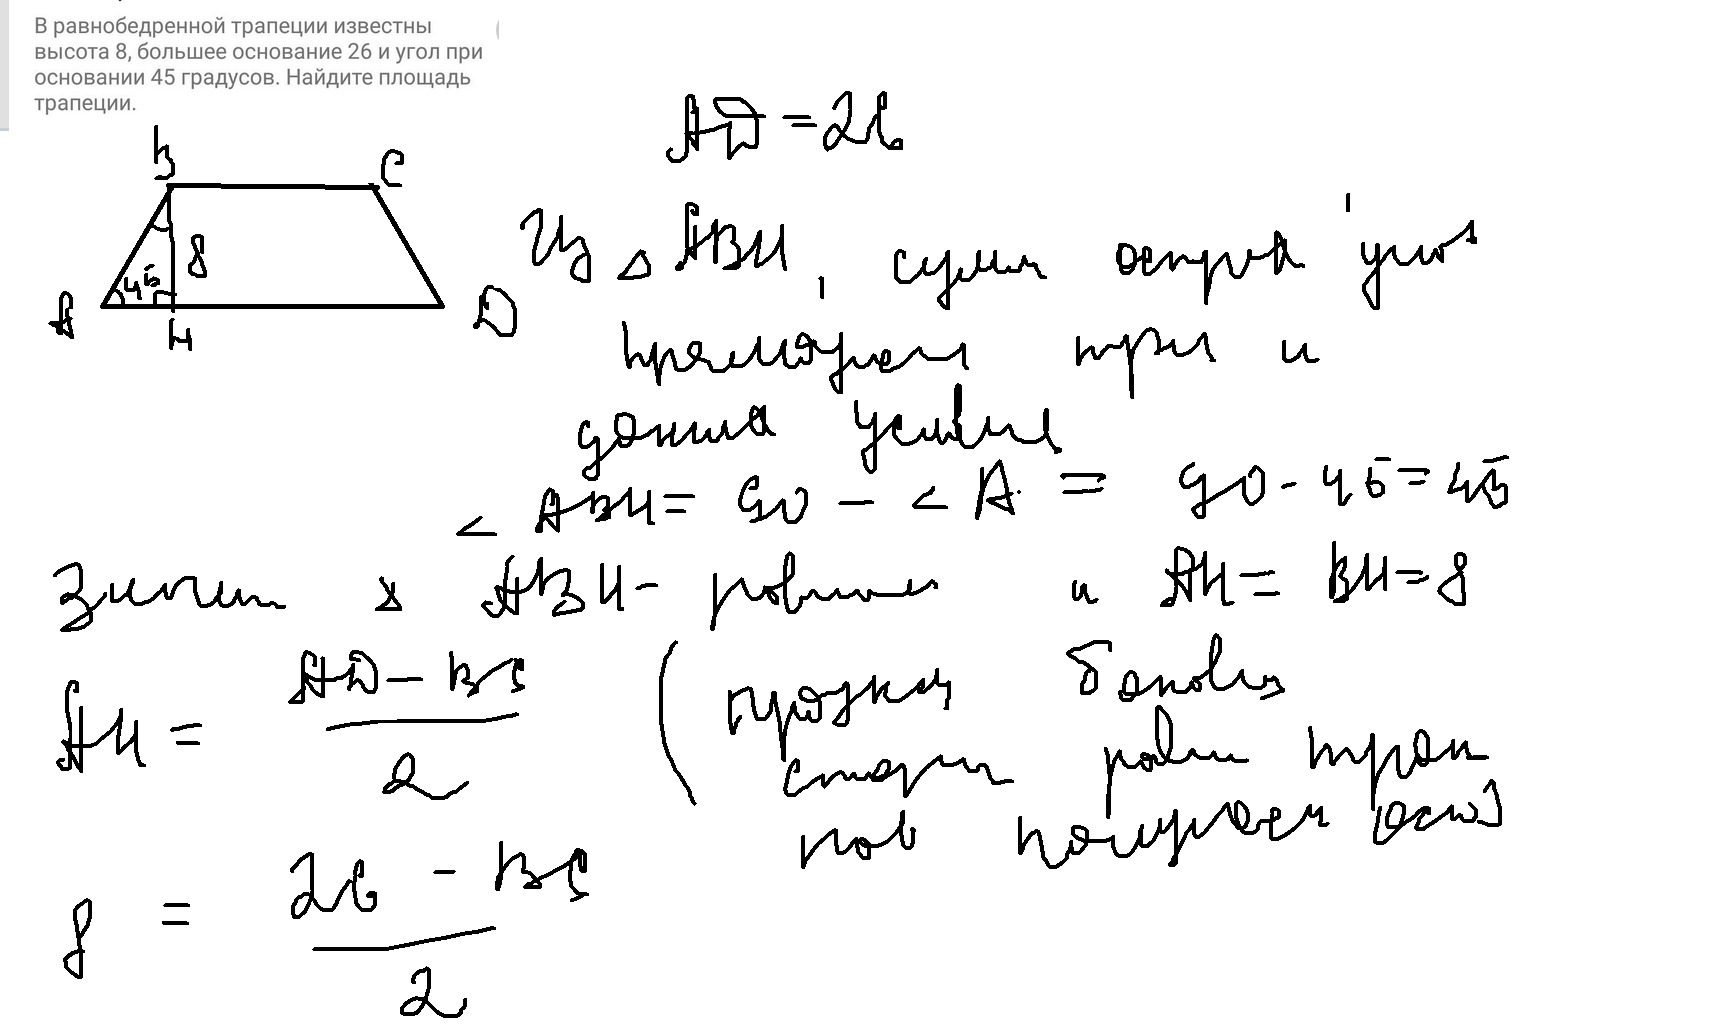 В равнобедренной трапеции известны
высота 8, большее основание 26 и угол при
основании 45 градусов. Найдите площадь
трапеции.
AD = 26
B C
8
45
A H D
Из △ ABH, сумм остра угло
прямоугол три и
данных условия
∠ ABH = 90 - ∠ A = 90 - 45 = 45
Значит △ ABH - равно и AH = BH = 8
AH = AD - BC / 2
(проекц боковы
сторон равн трап
пол полуразн осно)
8 = 26 - BC / 2